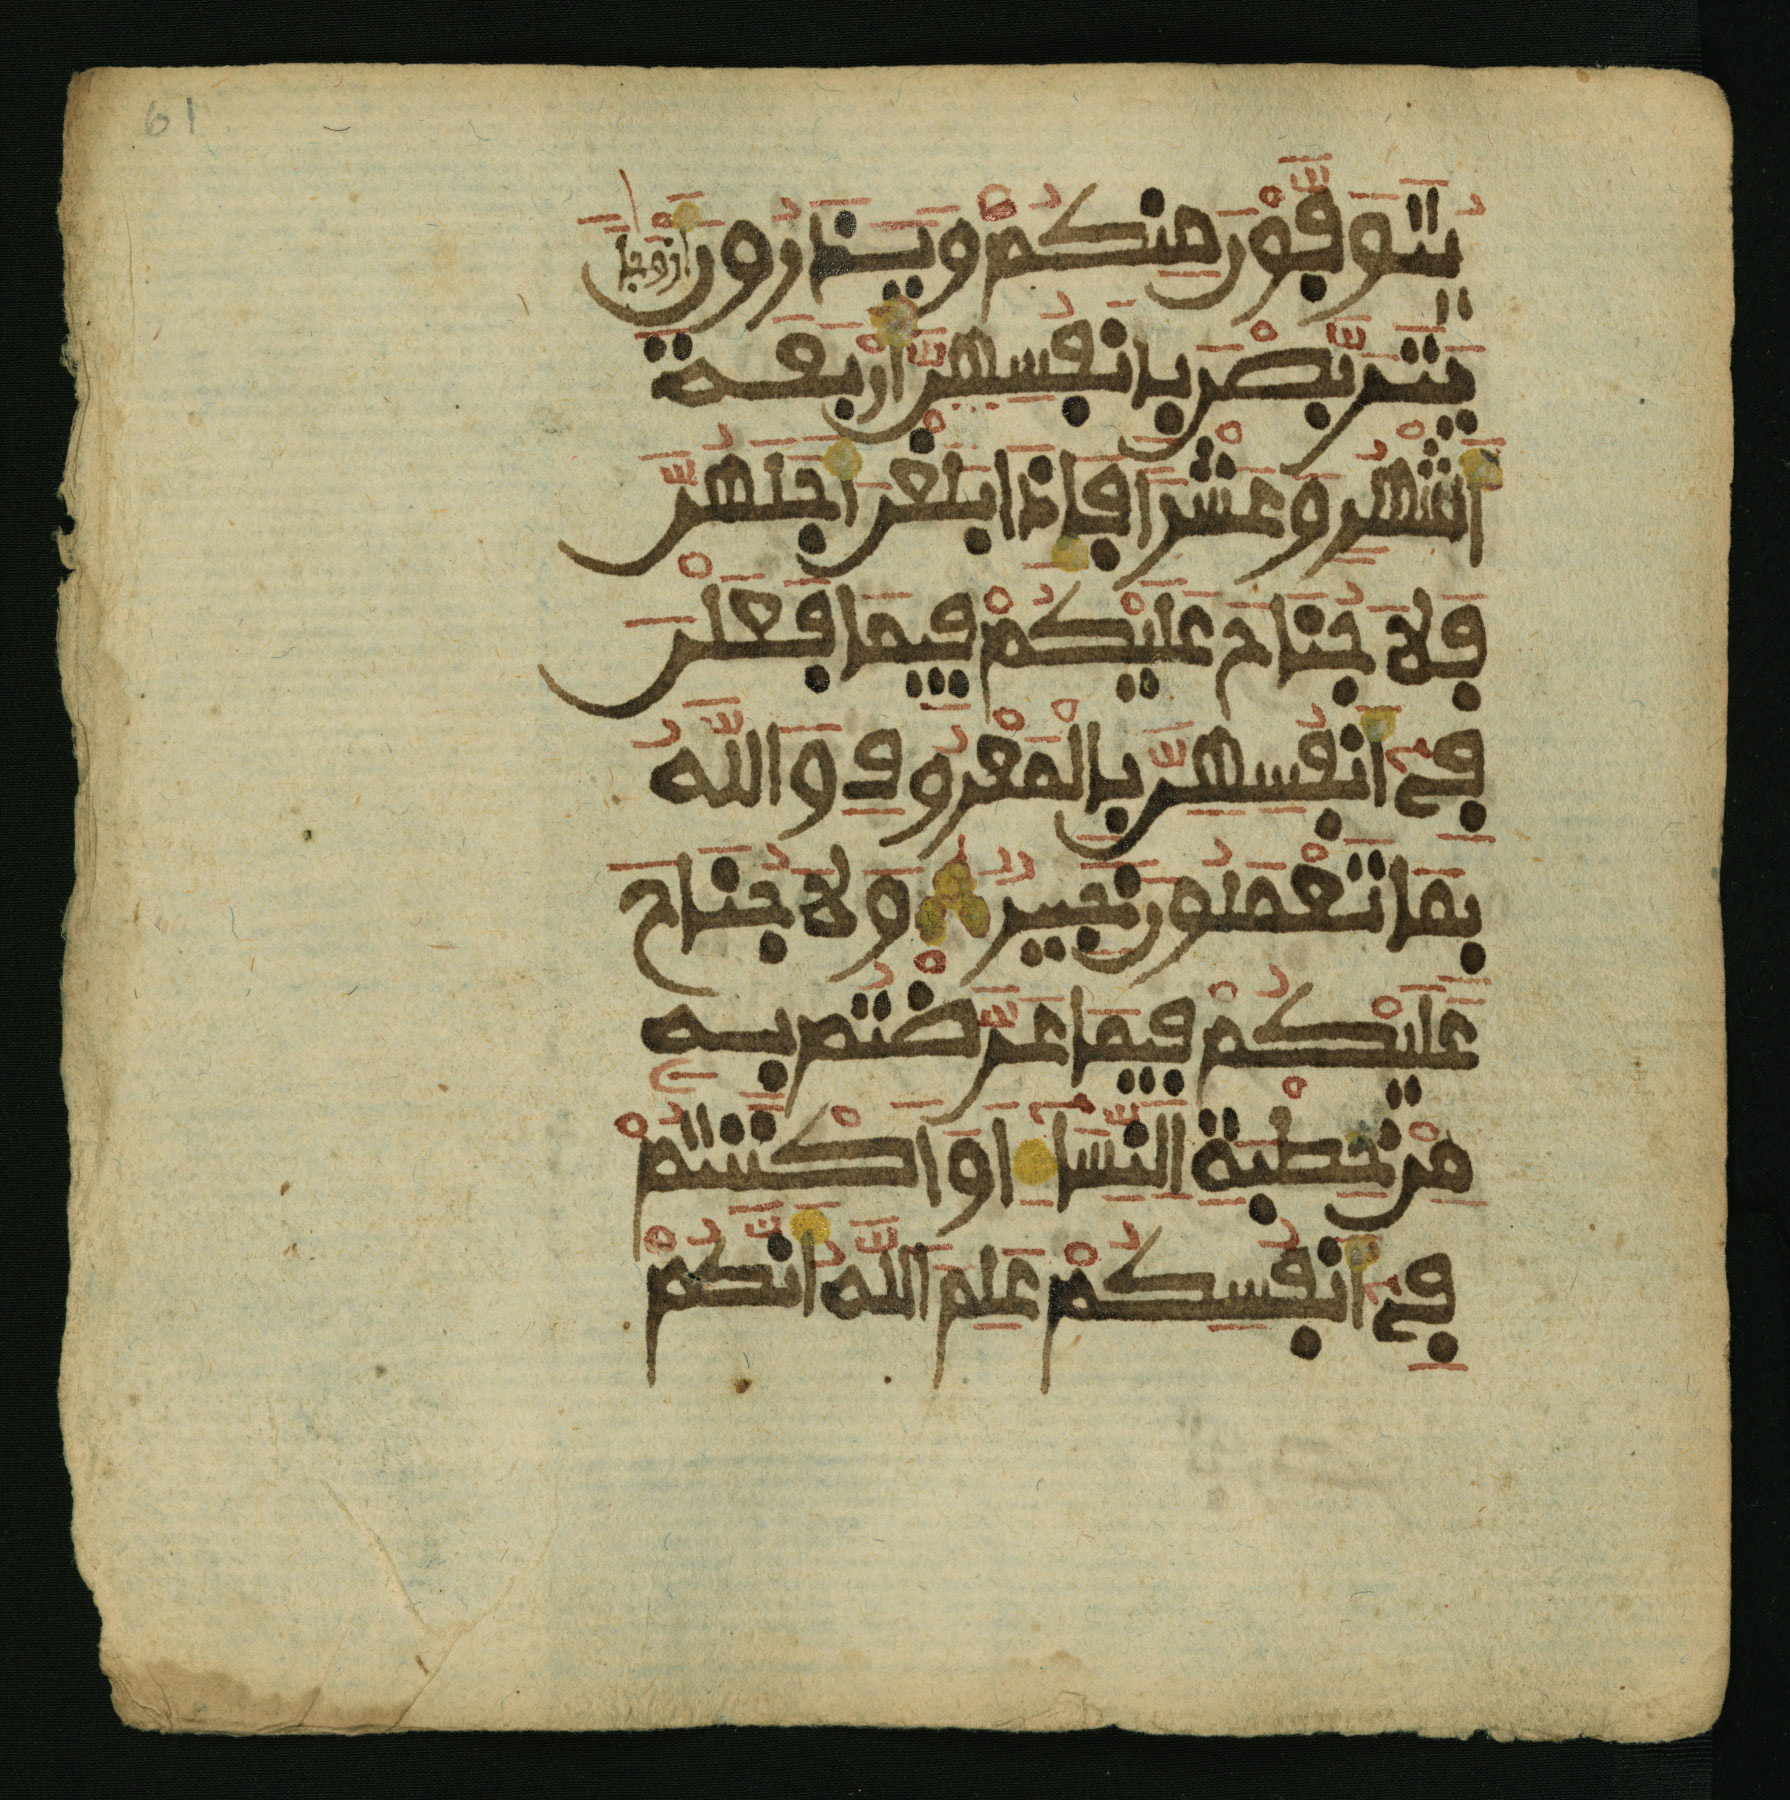 61
يُتَوَفَّوْنَ مِنكُمْ وَيَذَرُونَ أَزْوَٰجًا
يَتَرَبَّصْنَ بِأَنفُسِهِنَّ أَرْبَعَةَ
أَشْهُرٍ وَعَشْرًا فَإِذَا بَلَغْنَ أَجَلَهُنَّ
فَلَا جُنَاحَ عَلَيْكُمْ فِيمَا فَعَلْنَ
فِي أَنفُسِهِنَّ بِالْمَعْرُوفِ وَاللَّهُ
بِمَا تَعْمَلُونَ خَبِيرٌ وَلَا جُنَاحَ
عَلَيْكُمْ فِيمَا عَرَّضْتُم بِهِ
مِنْ خِطْبَةِ النِّسَاءِ أَوَ اكْنَنتُمْ
فِي أَنفُسِكُمْ عَلِمَ اللَّهُ أَنَّكُمْ